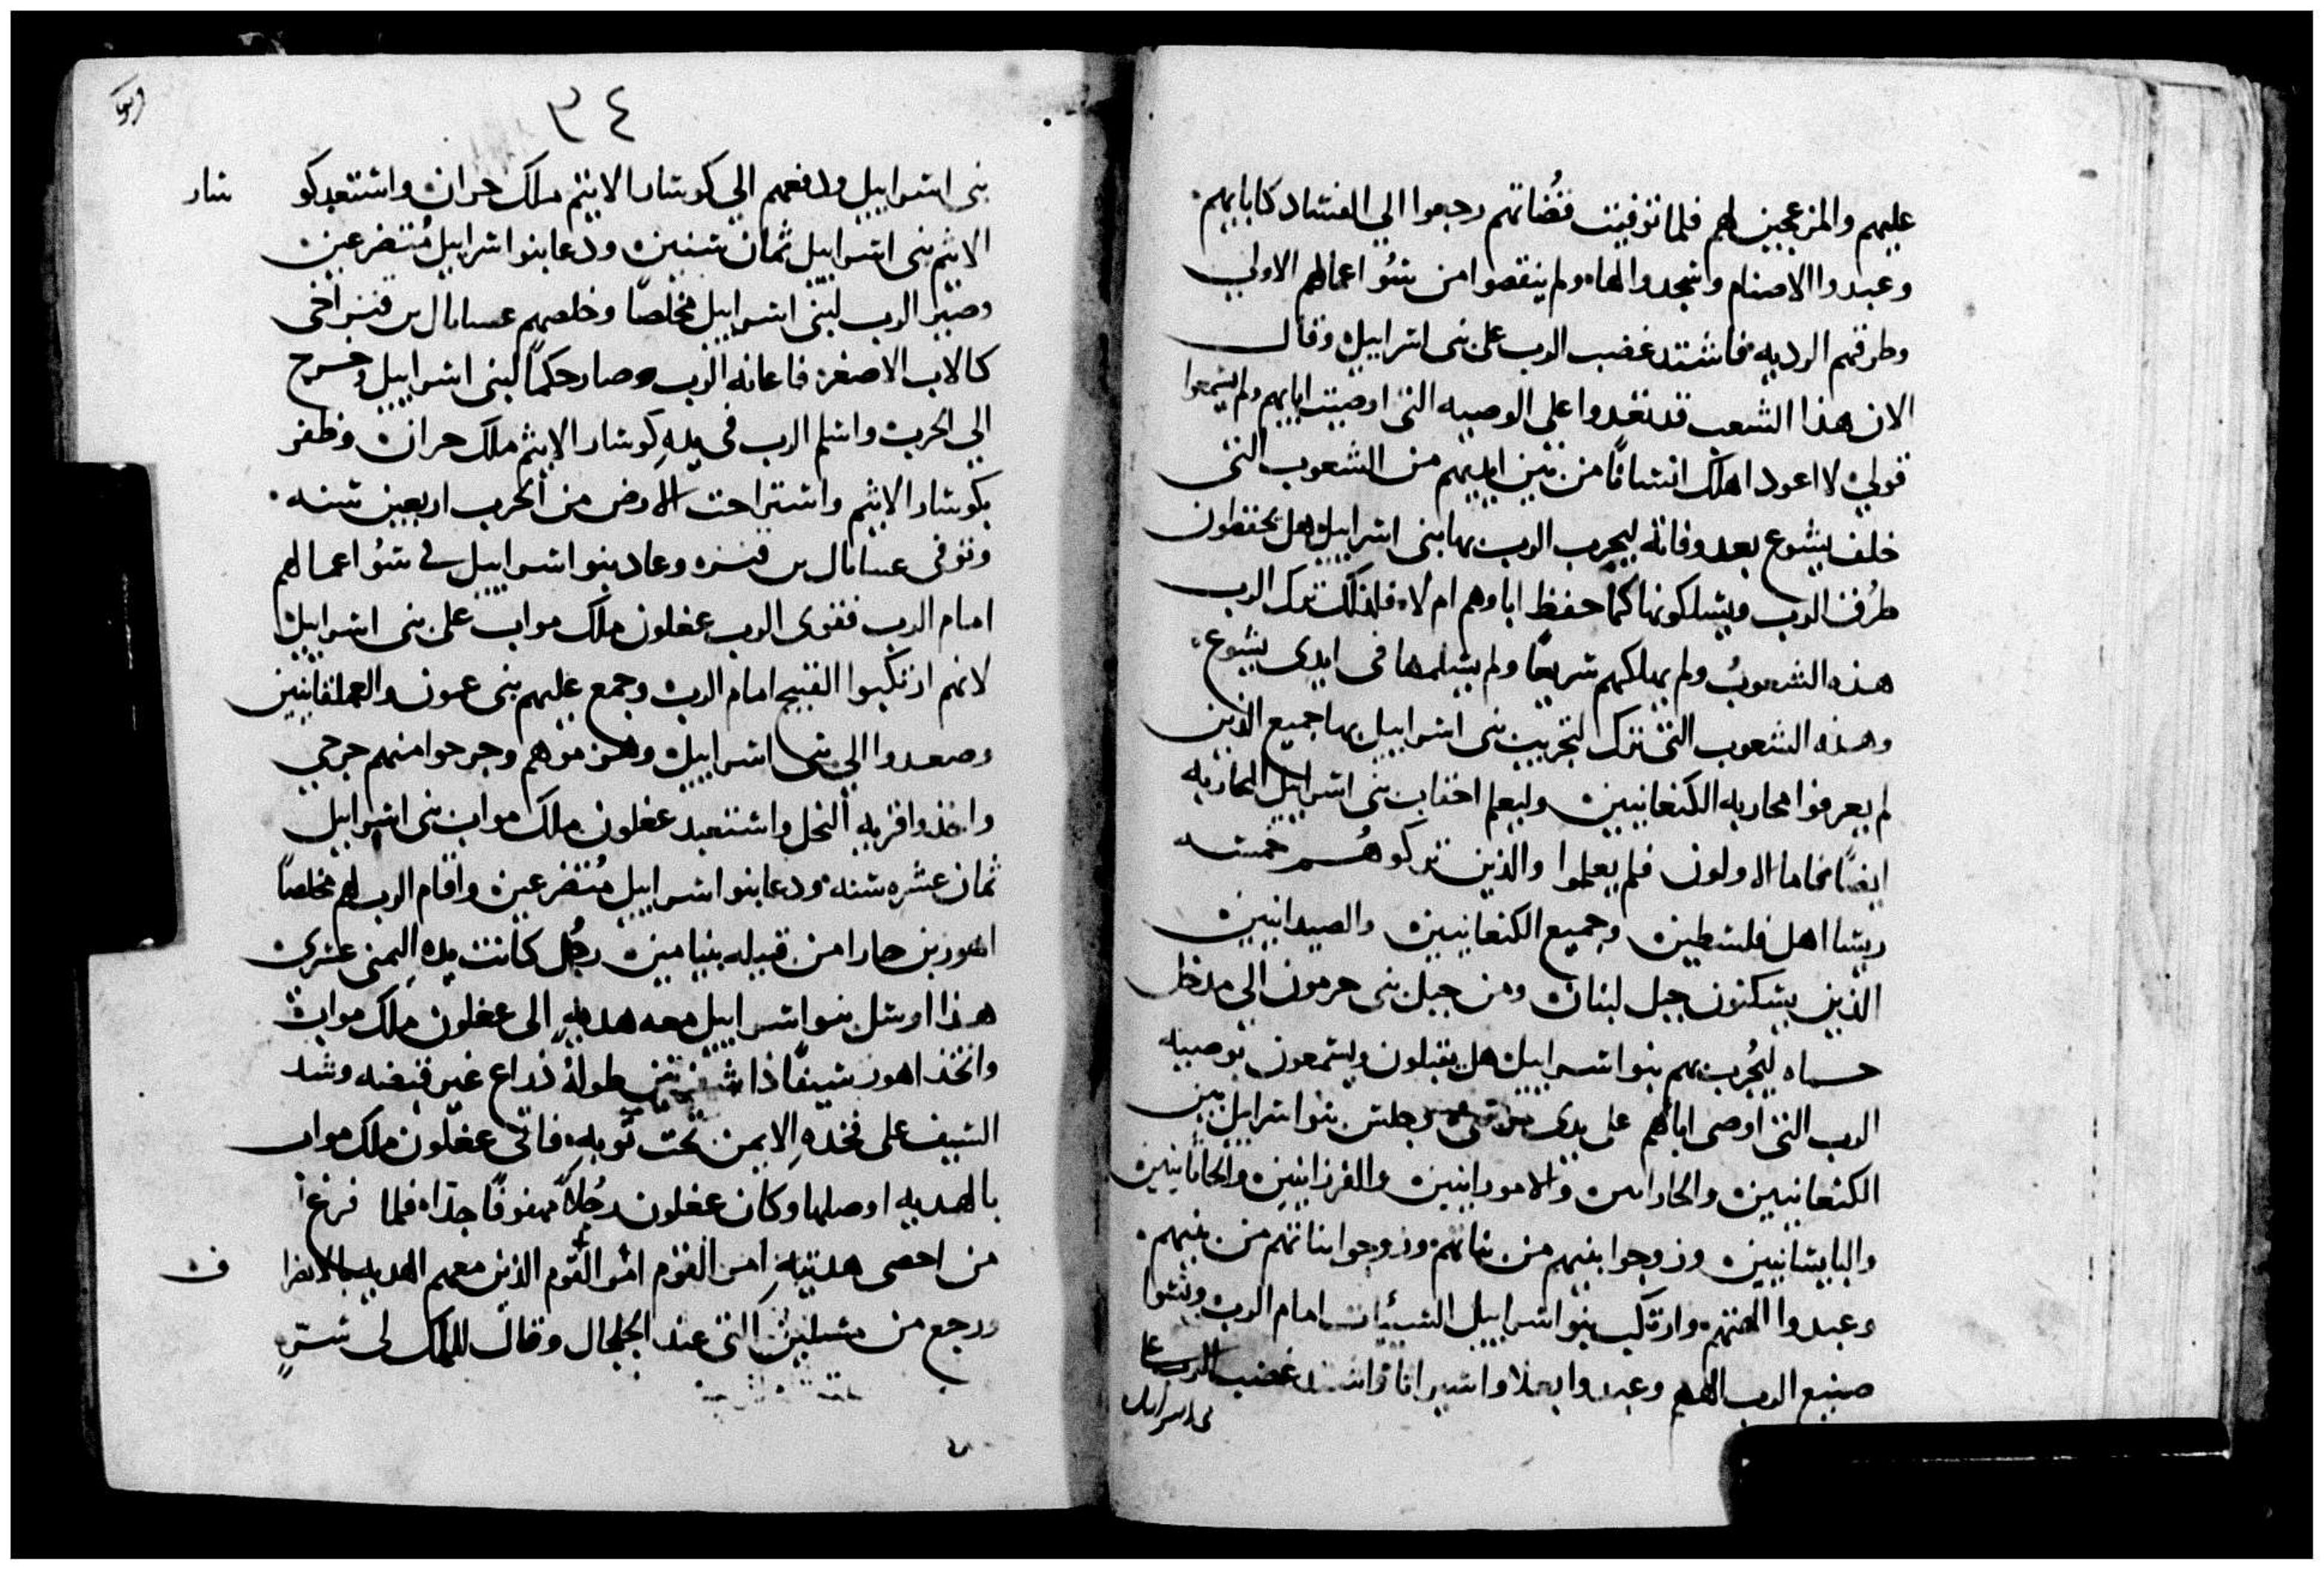 عليهم والمزعجين لهم فلما توفيت قضاتهم رجعوا الي الفساد كابايهم
وعبدوا الاصنام وسجدوا لها ولم ينقصوا من سو اعمالهم الاولي
وطرقهم الرديه فاشتد غضب الرب على بنى اسراييل وقال
الان هذا الشعب قد تعدوا على الوصيه التى اوصيت اباهم ولم يسمعوا
قولي لا اعود اهلك انسانًا من بين ايديهم من الشعوب التى
خلف يشوع بعد وفاته ليجرب الرب بها بنى اسراييل هل يحفظون
طرُق الرب ويسلكونها كما حفظ اباوهم ام لا فلذلك ترك الرب
هذه الشعوبُ ولم يهلكهم سريعًا ولم يسلمها فى ايدى يشوع
وهذه الشعوب التى ترك لتجريب بنى اسراييل بها جميع الذين
لم يعرفوا محاربه الكنعانيين وليعلم احقاب بنى اسراييل المحاربه
ايضًا فاما الاولون فلم يعلموا والذين تركوهم خمسه
ريسا اهل فلسطين وجميع الكنعانيين والصيدانيين
الذين يسكنون جبل لبنان ومن جبل بنى حرمون الي مدخل
حماه ليُجرب بهم بنوا اسراييل هل يقبلون ويسمعون توصيه
الرب التى اوصى اباهم على يدى موسى وجلس بنوا اسراييل بين
الكنعانيين والحاراس والامورانيين والفرزانيين والحاثانيين
واليابيسانيين وزوجوا بنيهم من بناتهم وزوجوا بناتهم من بنيهم
وعبدوا الهتهم وارتكب بنوا اسراييل السيئات امام الرب ونسوا
صنيع الرب الههم وعبدوا بعلا واسيراثا واشتد غضب الرب على
بنى اسراييل
٣٤
بنى اسراييل ودفعهم الي كوشار الاثيم ملك حران واستعبد كو شار
الاثيم بنى اسراييل ثمان سنين ودعا بنوا اسراييل مُتضرعين
وصير الرب لبنى اسراييل مخلصًا وخلصهم عساىال بن قنز اخى
كالاب الاصغر فاعانه الرب وصار حكمًا لبنى اسراييل وخرج
الي الحرب واسلم الرب فى يدهِ كوشار الاثيم ملك حران وظفر
بكوشار الاثيم واستراحت الارض من الحرب اربعين سنه
وتوفى عساىال بن قنزه وعاد بنوا اسراييل في سوُ اعمالهم
امام الرب فقوى الرب عغلون ملك مواب على بنى اسراييل
لانهم ارتكبوا القبيح امام الرب وجمع عليهم بنى عمون والعملقانيين
وصعدوا الي بنى اسراييل وهزموهم وجرحوا منهم جرحي
واخذوا قريه النخل واستعبد عغلون ملك مواب بنى اسراييل
ثمان عشره سنه ودعا بنوا اسراييل مُتضرعين واقام الرب لهم مخلصًا
اهور بن حارا من قبيله بنيامين رجُل كانت يدهِ اليمنى عسرى
هذا ارسل بنوا اسراييل معه هديهِ الى عغلون ملك مواب
واتخذ اهور سيفًا ذا شفرتين طولهُ ذراع غير قبضه وشد
السيف على فخدهِ الايمن تحت ثوبه فاتى عغلون ملك مواب
بالهديه اوصلها وكان عغلون رجُلاً مهفوفًا جدًا فلما فرغ
من احصى هديتهِ امر القوم الذين معهم الهديه بالانصرا ف
ورجع من مسلين التى عند الجلجال وقال للملك لى سرٍ